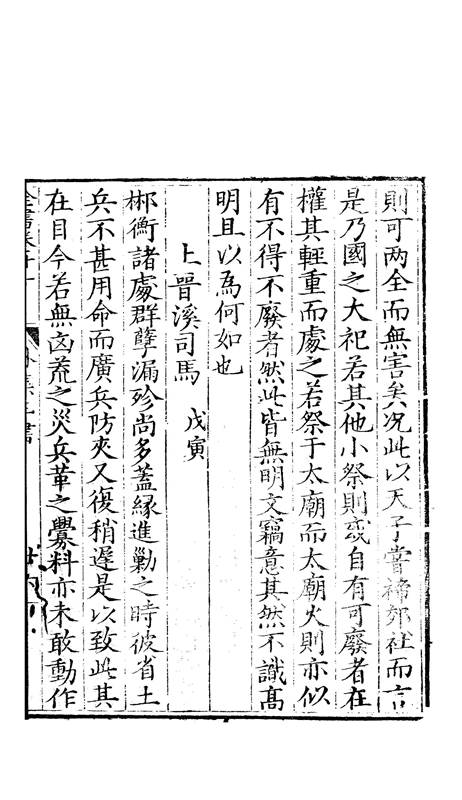 則可兩全而無害矣况此以天子嘗禘郊社而言
是乃國之大祀若其他小祭則或自有可廢者在
權其輕重而處之若祭于太廟而太廟火則亦似
有不得不廢者然此皆無明文竊意其然不識髙
明且以為何如也
上晉溪司馬 戊寅
郴衡諸處群孽漏殄尚多蓋緣進勦之時彼省土
兵不甚用命而廣兵防夾又復稍遲是以致此其
在目今若無凶荒之災兵革之釁料亦未敢動作